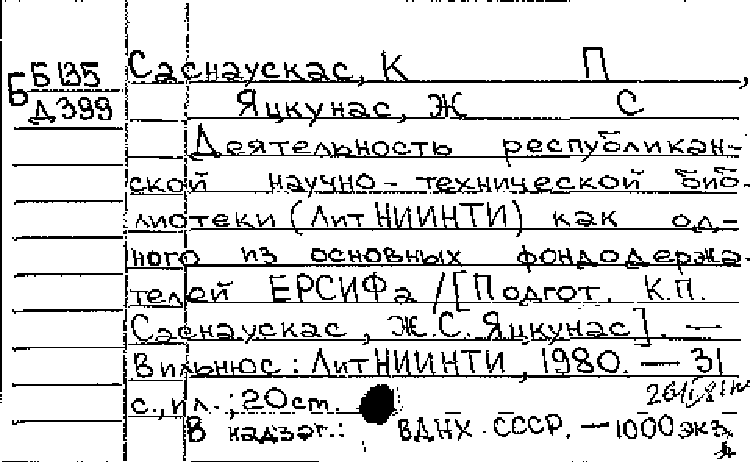 Б Б135 Саснаускас, К П ,
Д399 Яцкунас, Ж С
Деятельность республикан-
ской научно-технической биб-
лиотеки (ЛитНИИНТИ) как од-
ного из основных фондодержа-
телей ЕРСИФа /[Подгот. К.П.
Саснаускас, Ж.С. Яцкунас]. —
Вильнюс: ЛитНИИНТИ, 1980. — 31
с., ил.; 20 cm.
В надзаг.: ВДНХ СССР. — 1000 экз